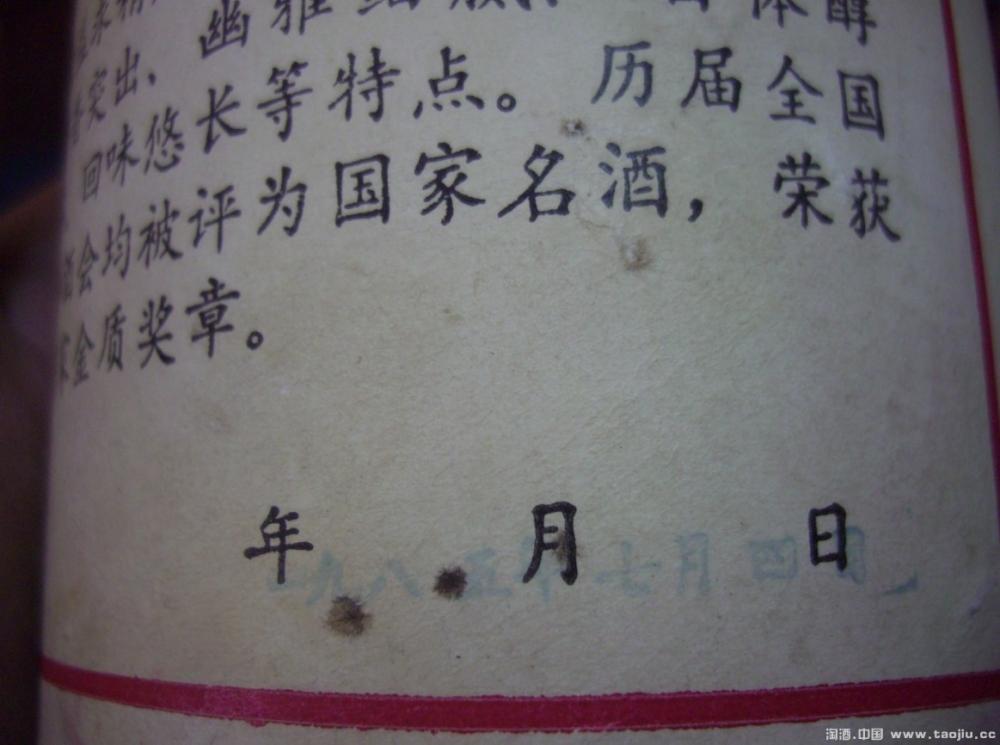 突出、幽雅细腻、 体醇
回味悠长等特点。历届全国
会均被评为国家名酒，荣获
家金质奖章。
年 月 日
九八五年七月四日
淘酒.中国 www.taojiu.cc